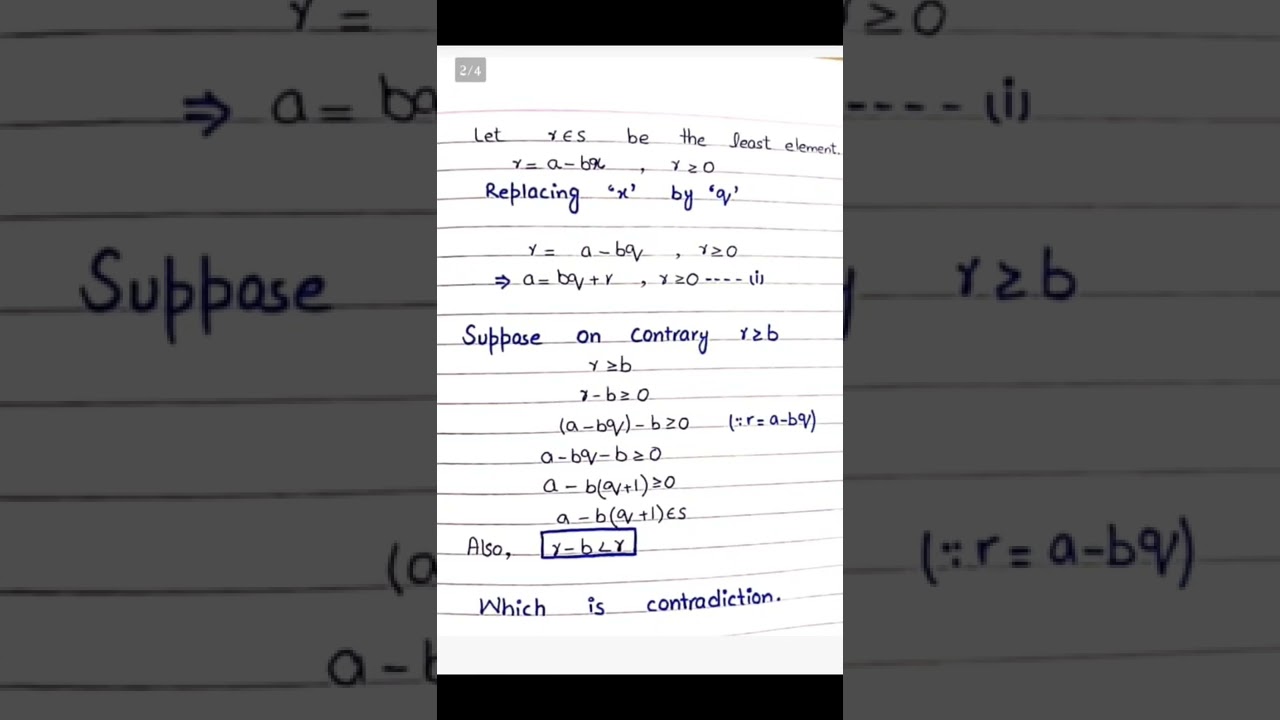 2/4
Let r∈S be the least element.
r = a-bx , r≥0
Replacing 'x' by 'q'
r = a-bq , r≥0
⇒ a = bq+r , r≥0 ---- (i)
Suppose on contrary r≥b
r≥b
r-b≥0
(a-bq)-b≥0 (∵r=a-bq)
a-bq-b≥0
a-b(q+1)≥0
a-b(q+1)∈S
Also, r-b<r
Which is contradiction.
r =
r ≥ 0
⇒ a = bq
---- (i)
Suppose
r≥b
(a
(∵r=a-bq)
a-b